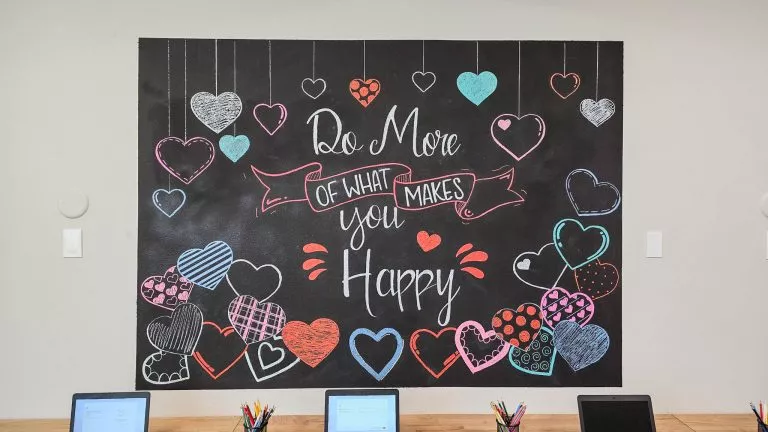 Do More
OF WHAT MAKES
you
Happy